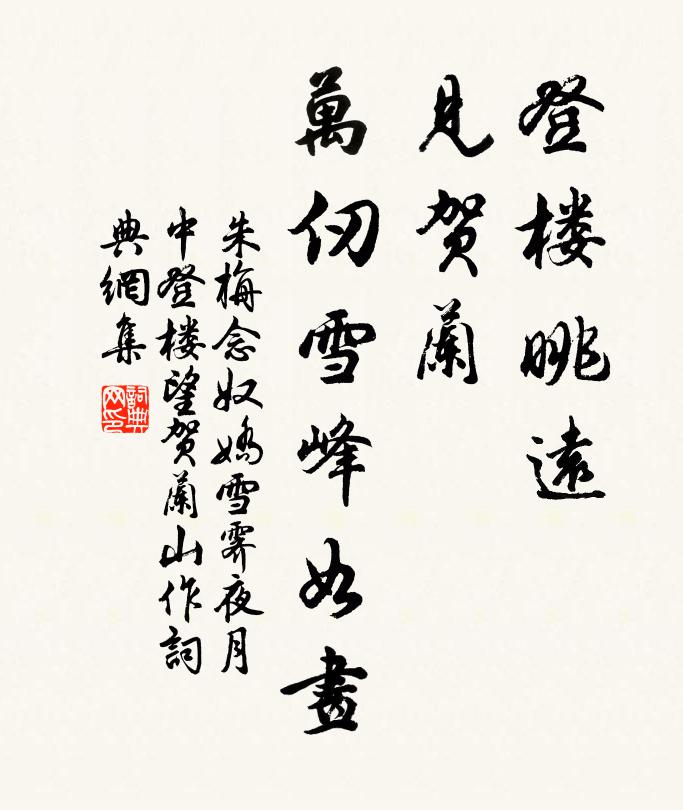 登楼眺遠
見賀蘭
萬仞雪峰如畫
朱梅念奴嬌雪霽夜月
中登楼望賀蘭山作詞
典網集
詞典
网印